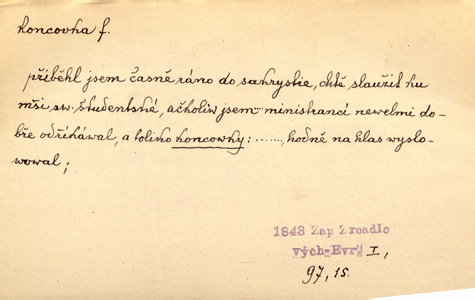 koncovka f.
přiběhl jsem časně ráno do sakrystie, chtě slaužit ku
mši sw. študentské, ačkoliw jsem ministrancí newelmi do-
bře odříkáwal, a toliko koncowky: ......, hodně na hlas wyslo-
wowal;
1843 Zap Zrcadlo
vých-Evr. I,
97, 15.